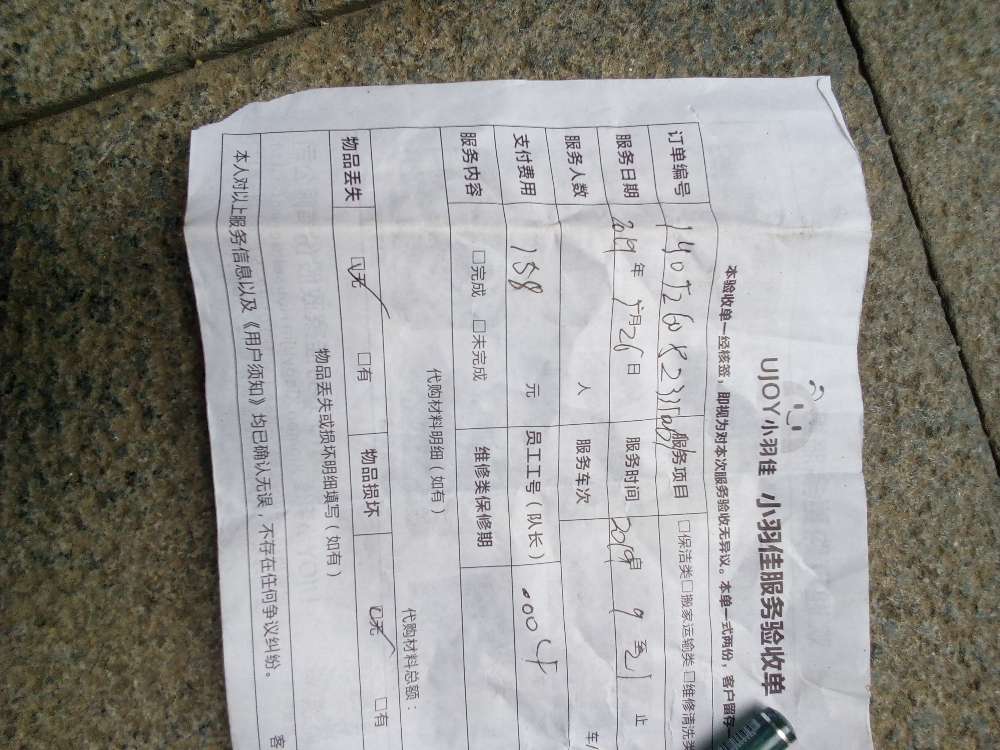 UJOY小羽佳 小羽佳服务验收单
本验收单一经核签,即视为对本次服务验收无异议。本单一式两份,客户留存
订单编号 服务项目 □保洁类□搬家运输类□维修清洗类
服务日期 2019年5月26日 服务时间 2019 自 9 至 止
服务人数 人 服务车次 车/
支付费用 158 元 员工工号(队长)
服务内容 □完成 □未完成 维修类保修期
代购材料明细(如有) 代购材料总额:
物品丢失 □无 □有 物品损坏 □无 □有
物品丢失或损坏明细填写(如有)
本人对以上服务信息以及《用户须知》均已确认无误,不存在任何争议纠纷。
客